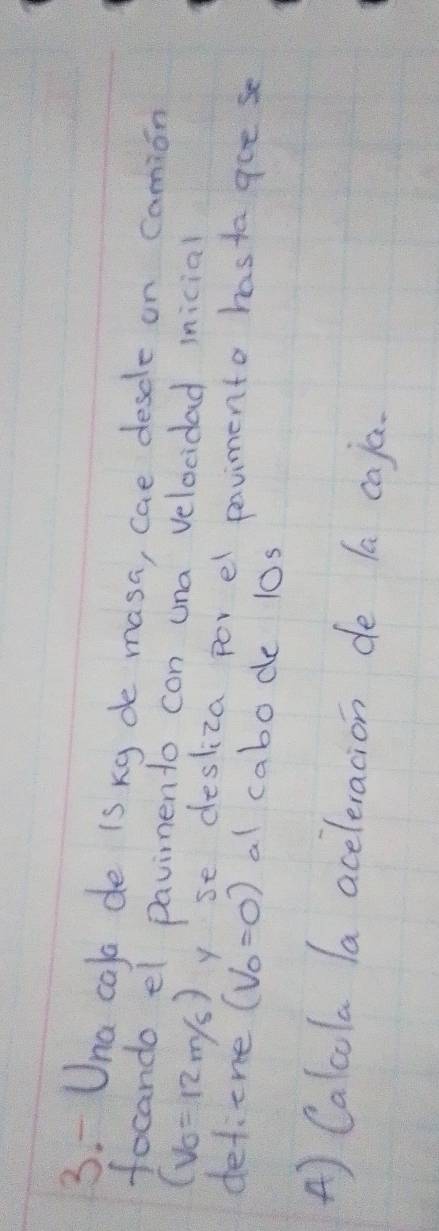 3.- Una caja de 15 kg de masa, cae desde un camión
tocando el pavimento con una velocidad inicial
(Vo=12 m/s) y se desliza por el pavimento hasta que se
detiene (Vo=0) al cabo de 10s
A) Calcula la aceleración de la caja.